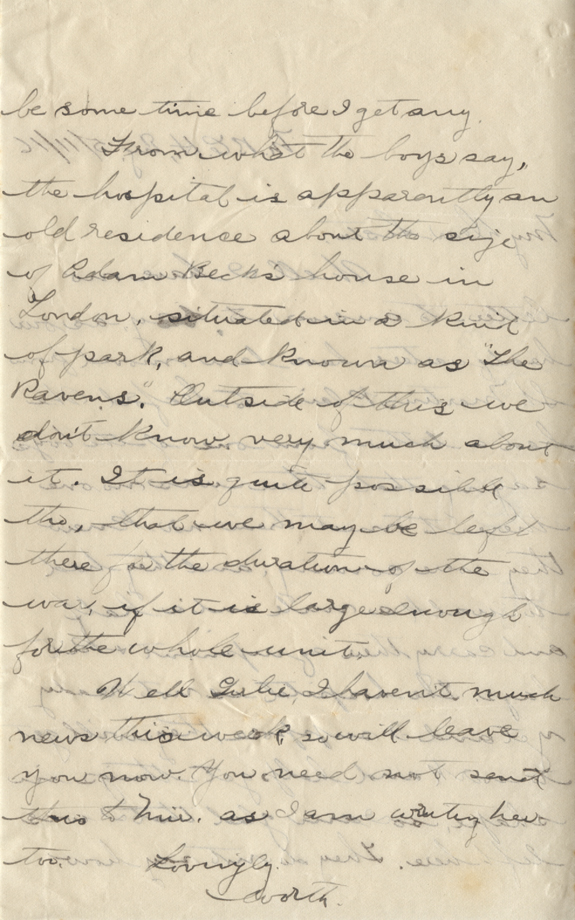 be some time before I get any.
From what the boys say,
the hospital is apparently an
old residence about the size
of Adam Beck's house in
London, situated in a kind
of park, and known as "The
Ravens". Outside of this we
don't know very much about
it. It is quite possible
tho, that we may be left
there for the duration of the
war, if it is large enough
for the whole unit.
Well Julie, I haven't much
news this week, so will leave
you now. You need not send
this to Min. as I am writing her
too. Lovingly.
Worth.